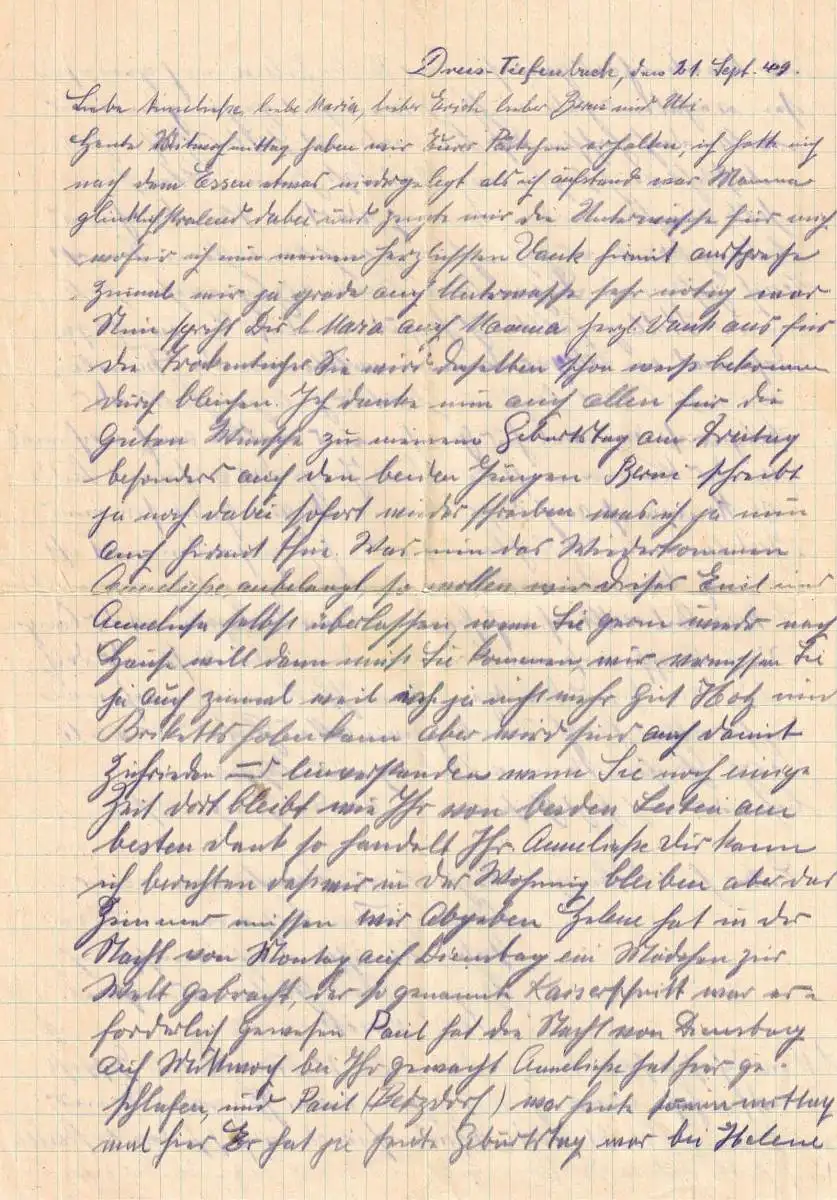 Dreis-Tiefenbach, den 21. Sept. 49.
Liebe Anneliese, liebe Maria, lieber Erich lieber Berni und Uti
Heute Mitwochmittag haben wir Eures Päckchen erhalten, ich hatte mich
nach dem Essen etwas niedergelegt als ich aufstand war Mamma
glücklichstralend dabei und zeigte mir die Unterwäsche für mich
wofür ich nun meinen herzlichsten Dank hirmit ausspreche
zumal mir ja grade auch Unterwäsche sehr nötig war
Nun spricht Dir l Maria auch Mamma herzl. Dank aus für
die Trockentücher Sie wird dieselben schon weiß bekommen
durch bleichen. Ich danke nun auch allen für die
Guten Wünsche zu meinem Geburtstag am Freitag
besonders auch den beiden Jungen Berni schreibt
ja noch dabei sofort wieder schreiben was ich ja nun
auch hirmit thue. Was nun das Wiederkommen
Anneliese anbelangt so wollen wir dieses Euch und
Anneliese selbst überlassen wenn Sie gern wieder nach
Hause will dann muß Sie kommen wir vermissen Sie
ja auch zumal weil ich ja nicht mehr gut Holz und
Briketts holen kann aber wird sind auch damit
Zufrieden und einverstanden wenn Sie noch einige
Zeit dort bleibt wie Ihr von beiden Seiten am
besten denkt so handelt Ihr. Anneliese Dir kann
ich berichten daß wir in der Wohnung bleiben aber das
Zimmer müssen wir Abgeben Helene hat in der
Nacht von Montag auf Dienstag ein Mädchen zur
Welt gebracht, der so genannte Kaiserschnitt war er-
forderlich gewesen Paul hat die Nacht von Dienstag
auf Mittwoch bei Ihr gewacht Anneliese hat hier ge-
schlafen, und Paul (Betzdorf) war heute mittag
mal hier Er hat ja heute Geburtstag war bei Helene